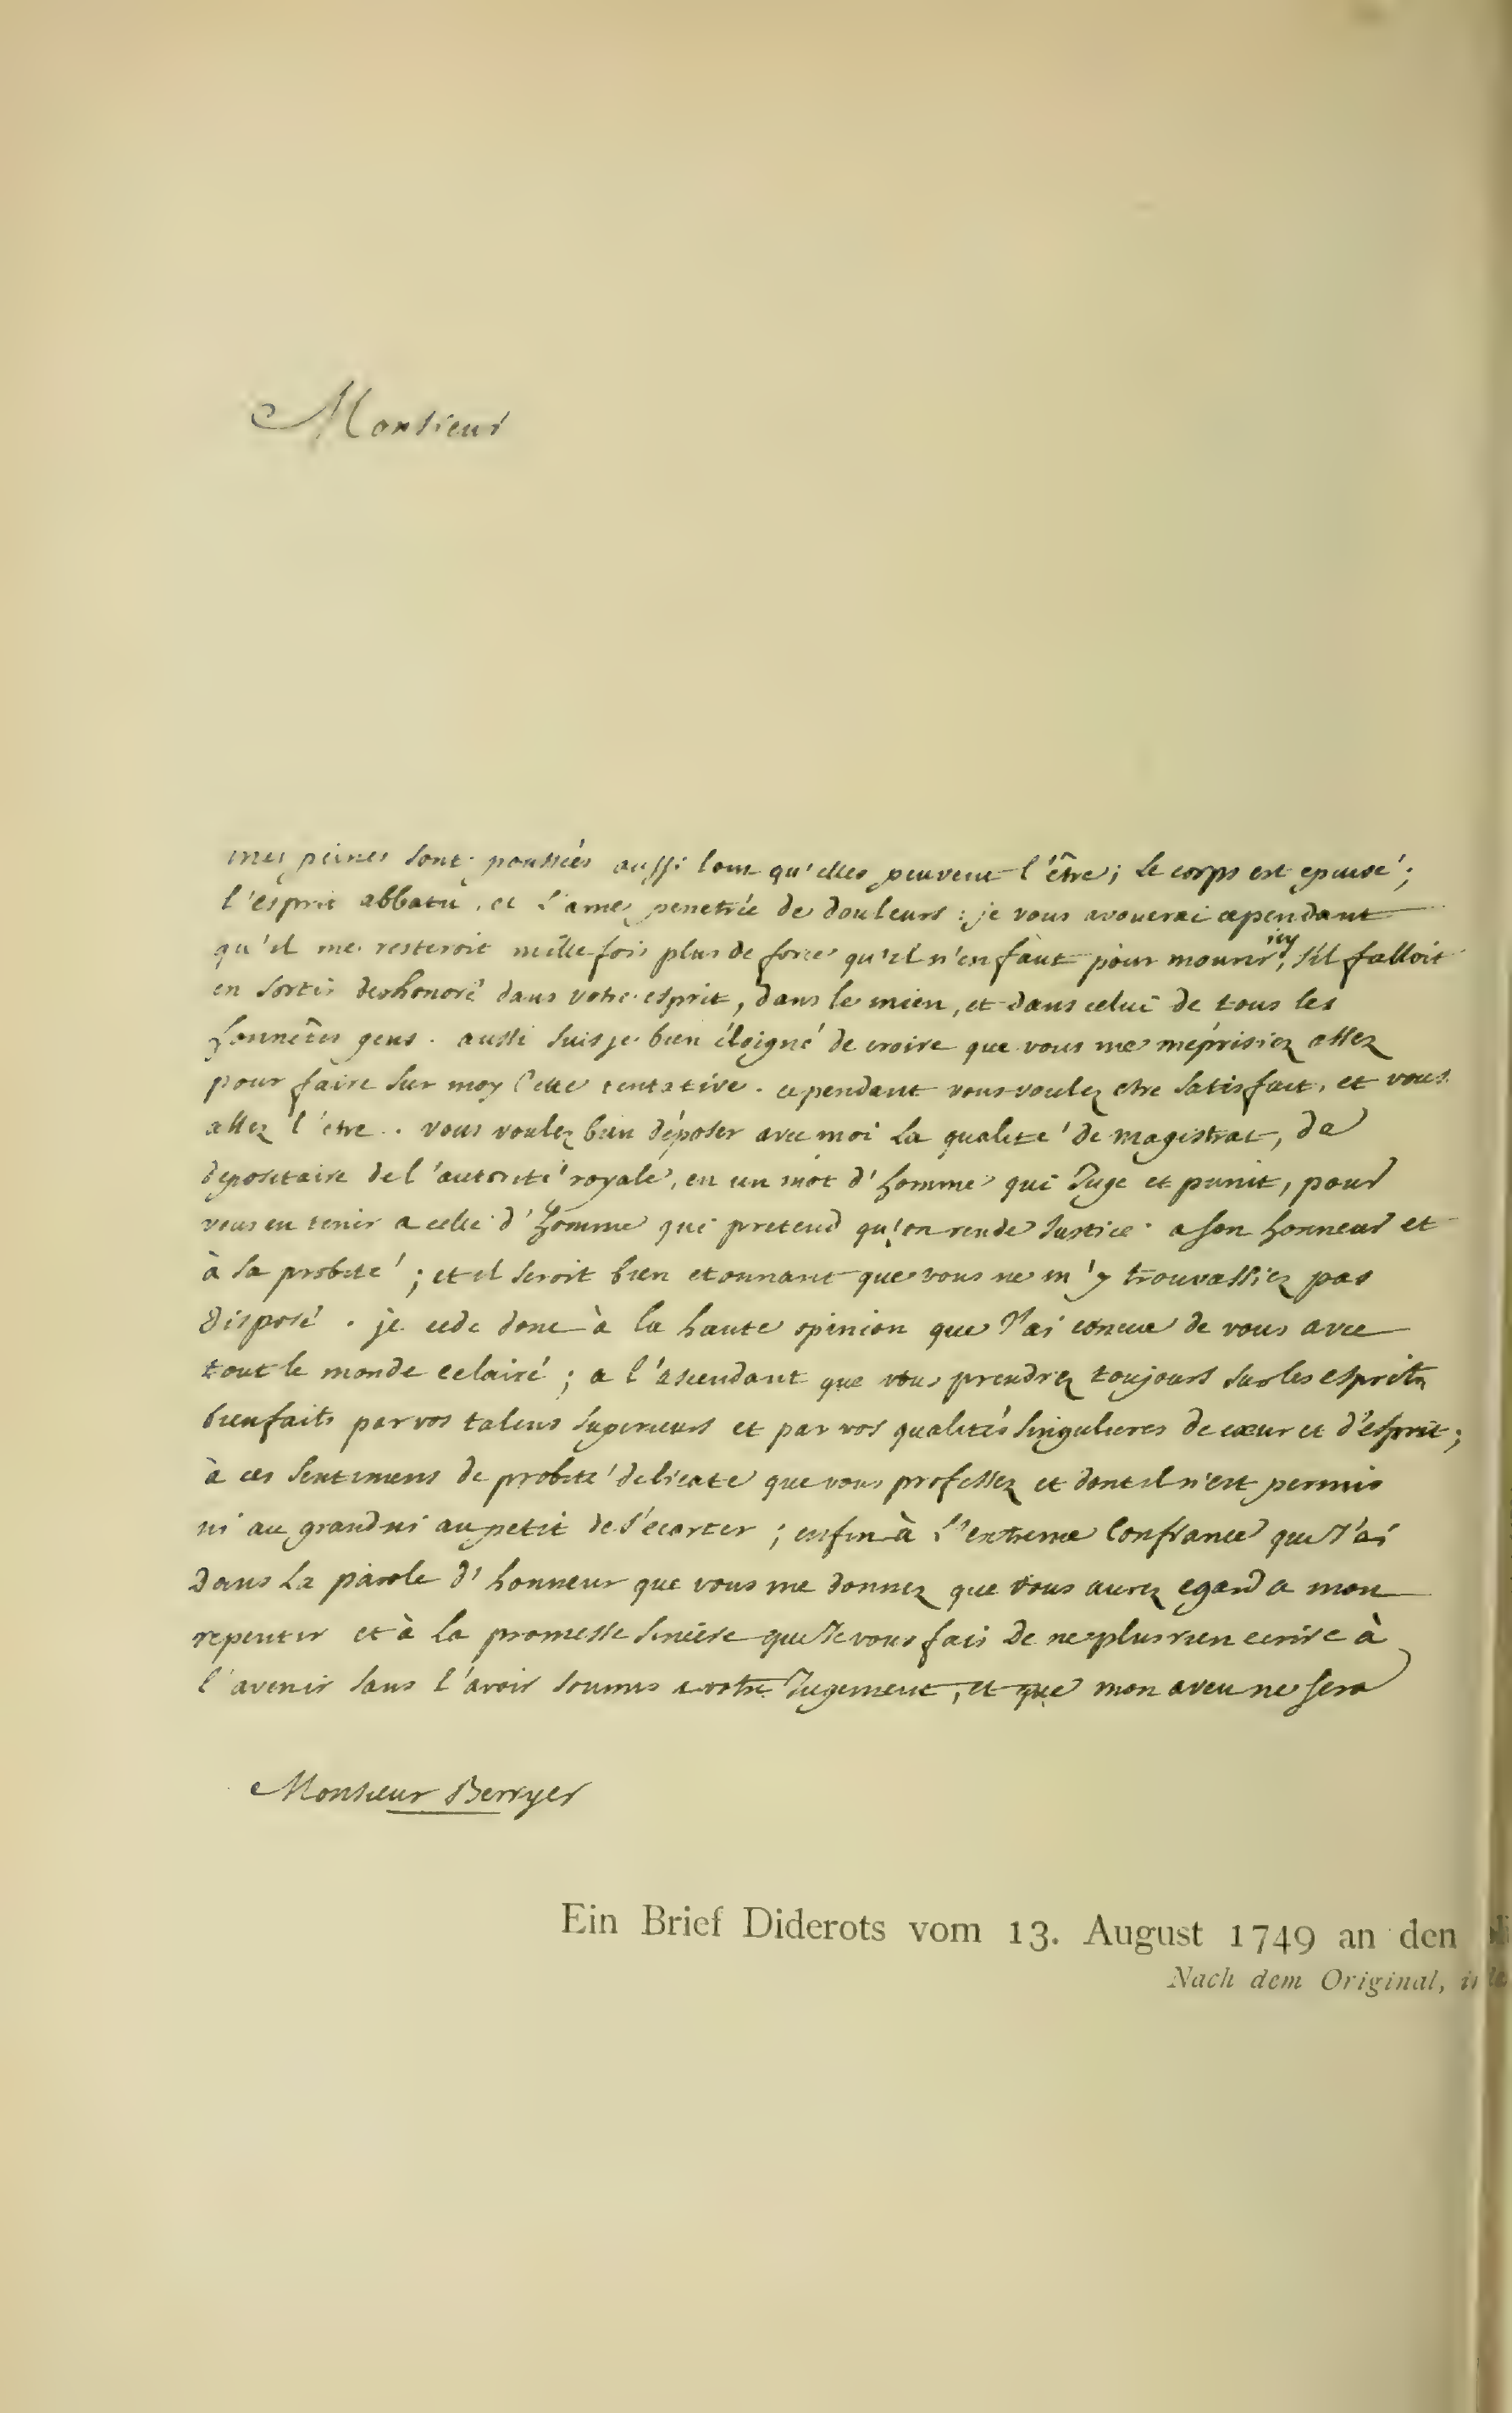 Monsieur
mes peines sont poussées aussi loin qu'elles peuvent l'être; le corps est epuisé;
l'esprit abbatu, et l'ame penetrée de douleurs : je vous avouerai cependant
qu'il me resteroit mille fois plus de force qu'il n'en faut pour mourir icy, s'il falloit
en sortir deshonoré dans votre esprit, dans le mien, et dans celui de tous les
honnêtes gens. aussi suis je bien éloigné de croire que vous me méprisiez assez
pour faire sur moy cette tentative. cependant vous voulez etre satisfait, et vous
allez l'etre. vous voulez bien déposer avec moi la qualité de magistrat, de
depositaire de l'autorité royale, en un mot d'homme qui Juge et punit, pour
vous en tenir a celle d'homme qui pretend qu'on rende Justice a son honneur et
à sa probité ; et il seroit bien etonnant que vous ne m'y trouvassiez pas
disposé. je cede donc à la haute opinion que J'ai concue de vous avec
tout le monde eclairé ; a l'ascendant que vous prendrez toujours sur les esprits
bienfaits par vos talens superieurs et par vos qualités singulieres de cœur et d'esprit;
à ces sentimens de probité delicate que vous professez et dont il n'est permis
ni au grand ni au petit de s'ecarter ; enfin à l'extreme confiance que J'ai
dans la parole d'honneur que vous me donnez que vous aurez egard a mon
repentir et à la promesse sincère que Je vous fais de ne plus rien ecrire à
l'avenir sans l'avoir soumis a votre Jugement, et que mon aveu ne sera
Monsieur Berryer
Ein Brief Diderots vom 13. August 1749 an den
Nach dem Original,